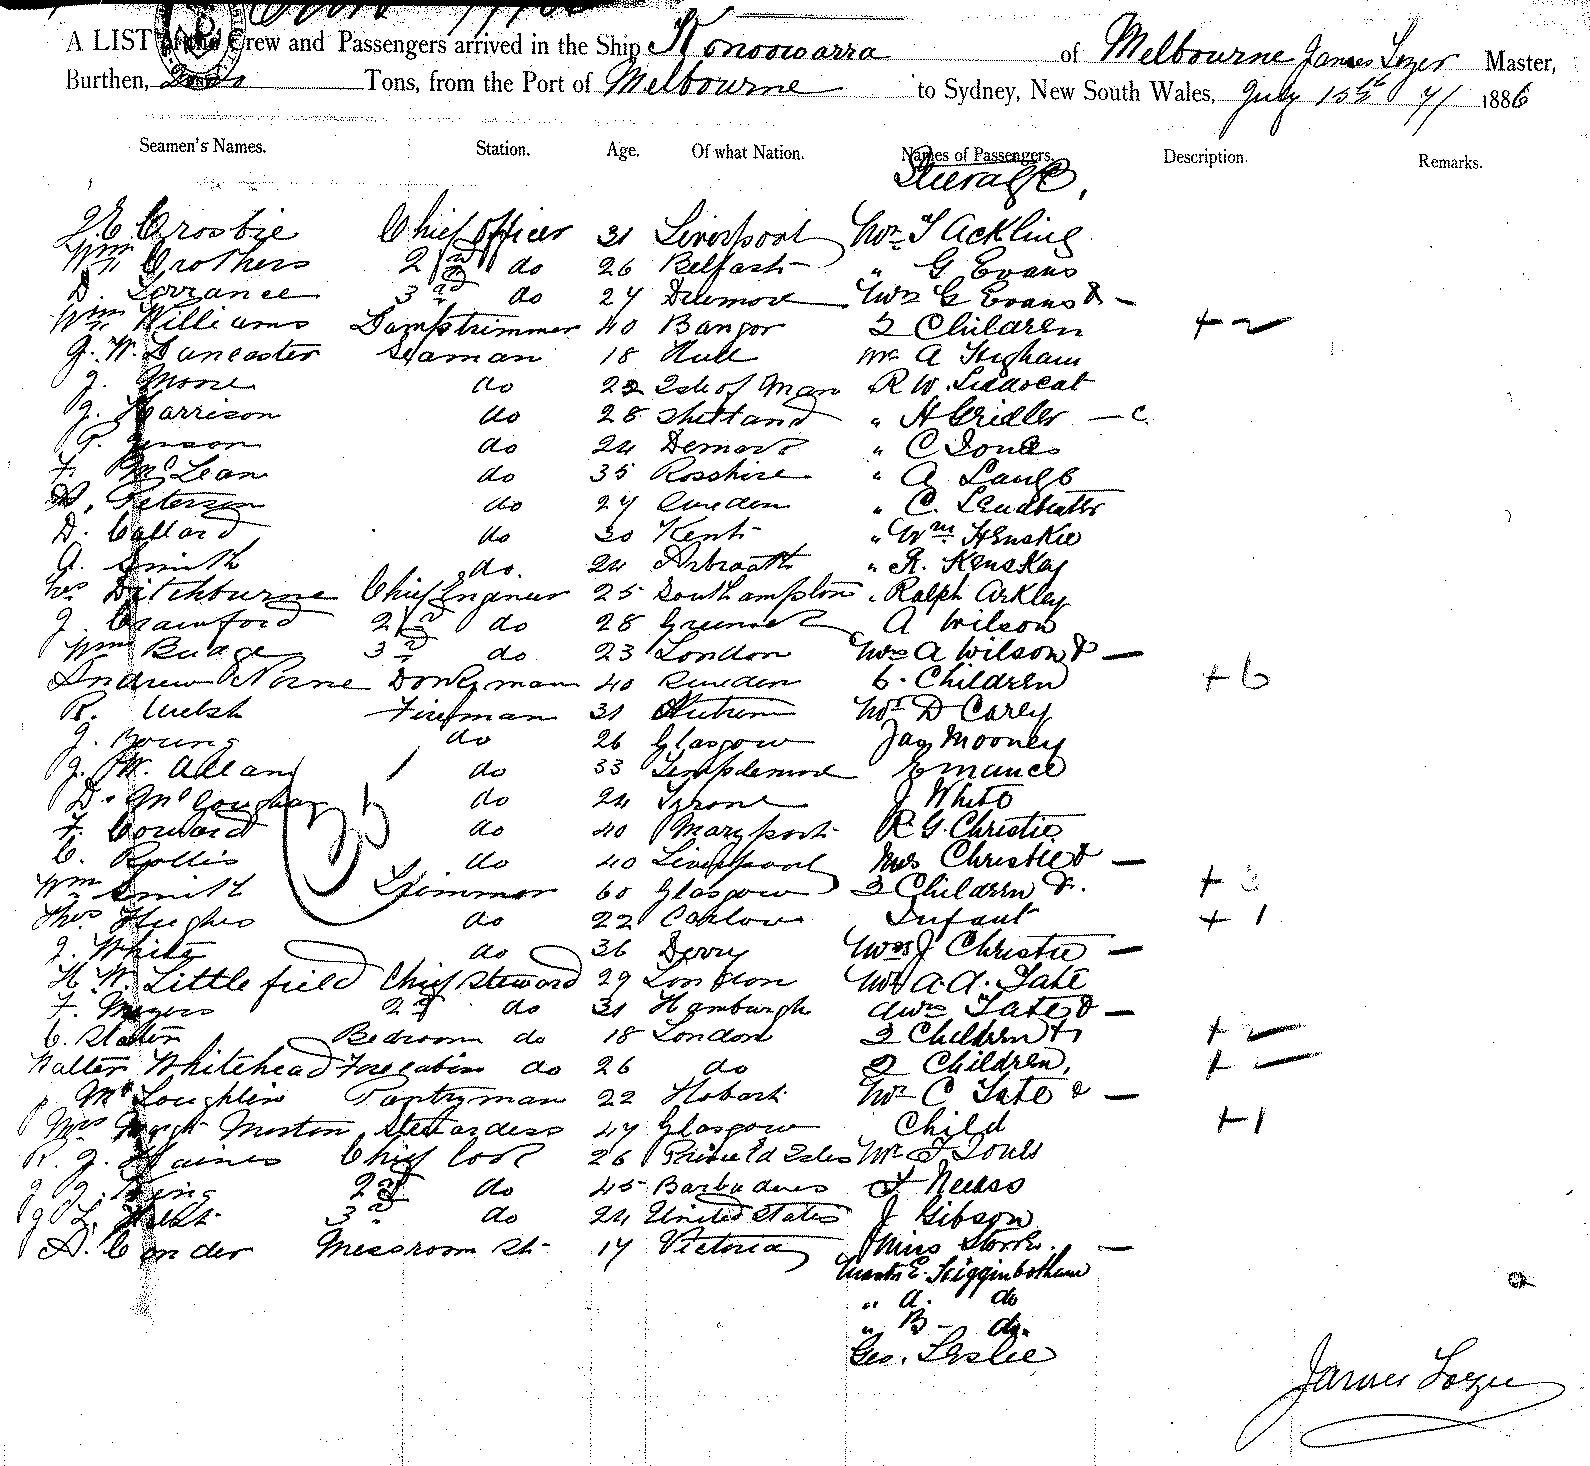 A LIST of the Crew and Passengers arrived in the Ship Konoowarra of Melbourne James Lozer Master,
Burthen, Tons, from the Port of Melbourne to Sydney, New South Wales, July 15th 7/ 1886
Seamen's Names. Station. Age. Of what Nation. Names of Passengers. Description. Remarks.
Steerage
Crosbie Chief Officer 31 Liverpool Mr T Ackling
Wm Crothers 2nd do 26 Belfast " G Evans
D. Torrance 3rd do 27 Mrs G Evans & —
Wm Williams Lamptrimmer 40 Bangor 2 Children + 2
J. W. Lancaster Seaman 18 Hull Mr A Higham
J. Moore do 22 Isle of Man R W.
J. Harrison do 28 Shetland " H Gridler — c
do 24 " C Jones
F. McLean do 35 Rosshire " A
Peterson do 27 Sweden " C.
D. Collard do 30 Kent " Wm Henskie
A. Smith do. 24 Arbroath "
Ditchburne Chief Engineer 25 Southampton " Ralph Arkley
J. Crawford 2nd do 28 A Wilson
Wm Budge 3rd do 23 London Mrs A Wilson & —
Andrew Donkyman 40 Sweden 6 Children + 6
R. Welsh Fireman 31 Mr D Carey
J. Young do 26 Glasgow Jas Mooney
J. W. Allan do 33
D. do 24 Tyrone J White
F. Coward do 40 Maryport R G. Christie
C. Rollis do 40 Liverpool Mrs Christie & —
Wm Smith Trimmer 60 Glasgow 3 Children & + 3
Thos Hughes do 22 Carlow Infant + 1
J. White do 36 Derry Mrs J Christie —
H. W. Littlefield Chief Steward 29 London Mr A. A. Tate
F. Meyers 2nd do 31 Hamburgh Mrs Tate & —
C. Bedroom do 18 London 2 Children + + 2
Walter Whitehead Forecabin do 26 do 2 Children, +
McLoughlin Pantryman 22 Hobart Mr C Tate & —
Mrs Morton Stewardess 47 Glasgow Child + 1
R. J. Haines Chief Cook 26 Mr
J. J. King 2nd do 45 Barbadoes
J L. 3rd do 24 United States J Gibson
A. Conder Messroom St 17 Victoria Miss —
Master E. Higginbotham
" A. do
" B — do.
Geo. Leslie
James Lozer